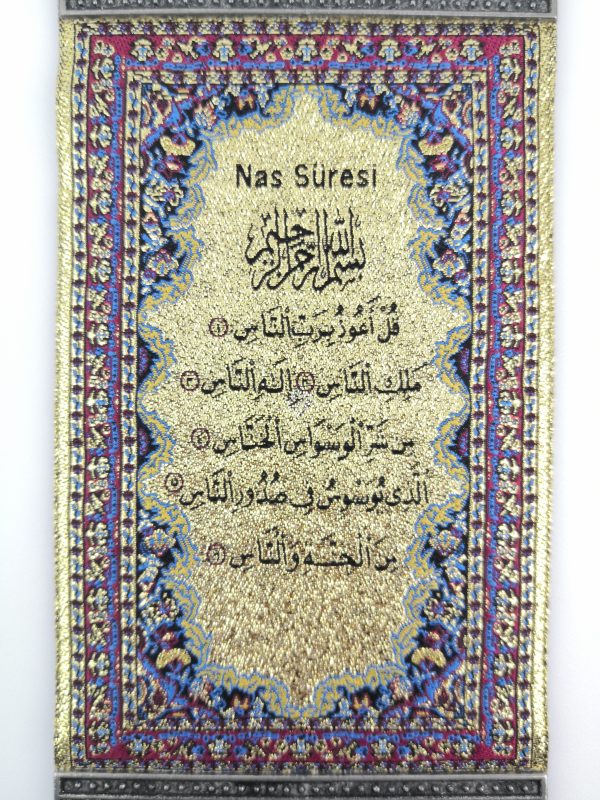 Nas Sûresi
بسم الله الرحمن الرحيم
قُلْ أَعُوذُ بِرَبِّ النَّاسِ ١
مَلِكِ النَّاسِ ٢ اِلَهِ النَّاسِ ٣
مِن شَرِّ الْوَسْوَاسِ الْخَنَّاسِ ٤
الَّذِي يُوَسْوِسُ فِي صُدُورِ النَّاسِ ٥
مِنَ الْجِنَّةِ وَالنَّاسِ ٦